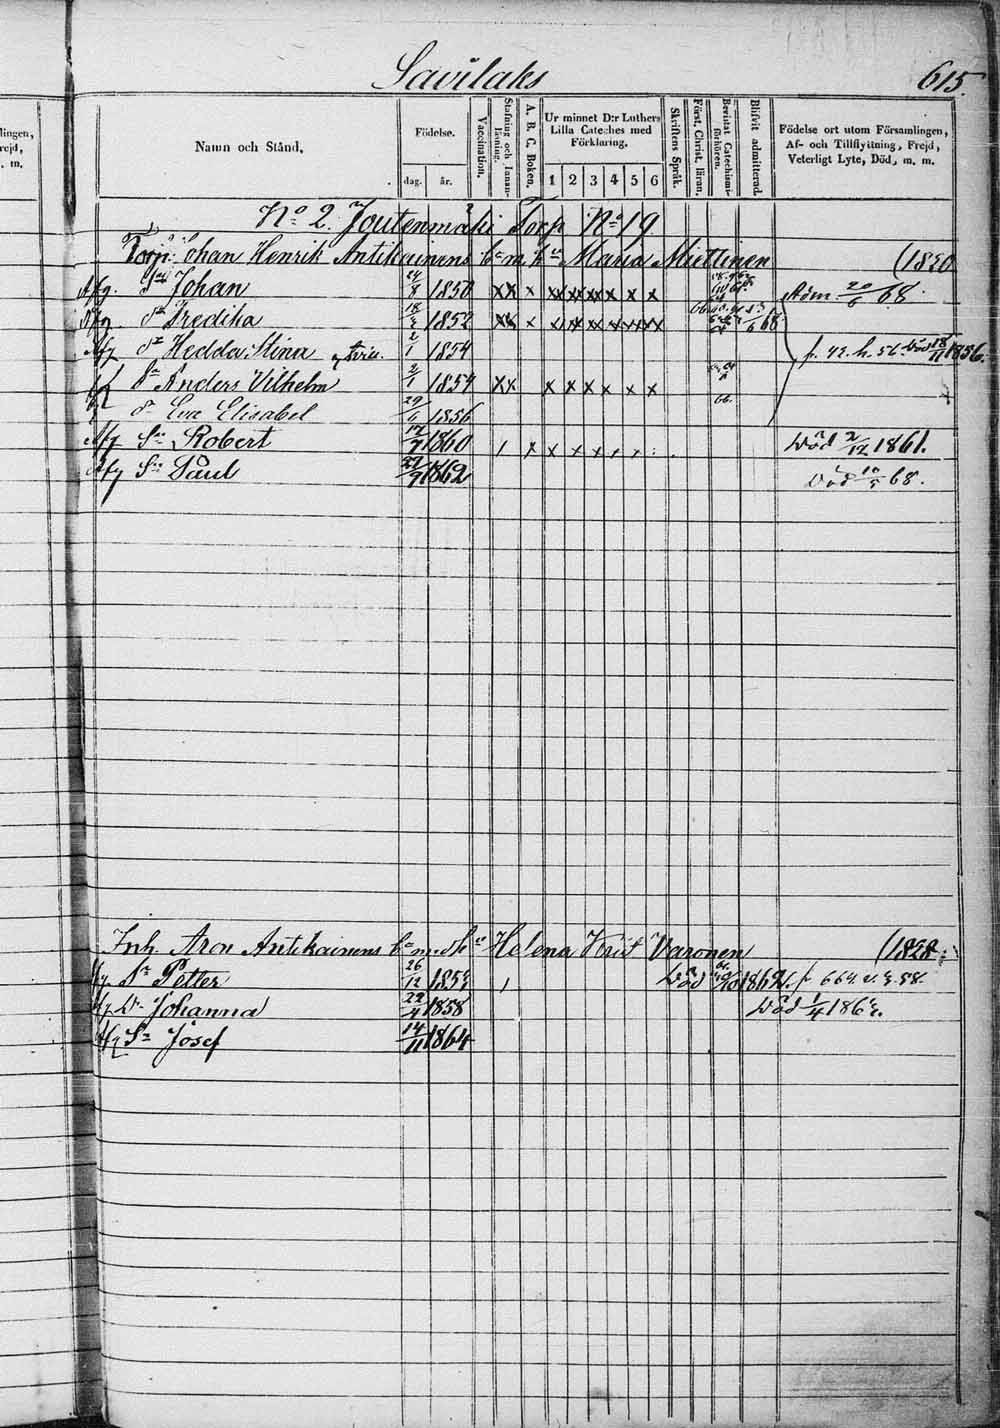 Savilaks 615.
lingen,
rejd,
. m.
Namn och Stånd,
Födelse.
dag. år.
Vaccination.
Stafning och Innan-
läsning.
A. B. C. Boken.
Ur minnet D:r Luthers
Lilla Cateches med
Förklaring.
1 2 3 4 5 6
Skriftens Språk.
Först. Christ. läran.
Bevistat Catechismi-
förhören.
Blifvit admitterad.
Födelse ort utom Församlingen,
Af- och Tillflyttning, Frejd,
Veterligt Lyte, Död, m. m.
No 2. Joutenmäki Torp No 19
Torp. Johan Henrik Antikainens bn m. hu Maria Miettinen (1820
Afg. Sn Johan 24/8 1850 xx x xx xx xx x x x Adm. 20/6 68.
Afg. dr Fredika 1852 6/68
Afg dr Hedda Stina 2/1 1854 p. 42. h. 56. Död 18/11 1856.
Sn Anders Vilhelm 2/1 1854 xx x x x x x x
dr Eva Elisabet 29/6 1856 66.
Afg Sn Robert 17/7 1860 Död 2/12 1861.
Afg Sn Paul 27/9 1862 Död 10/5 68.
Inh. Aron Antikainens bn med hu Helena Krist Varonen (1828
Afg. Sn Petter 26/12 1853 Död 1862. p 664. v. 3. 58.
Afg Dr Johanna 22/4 1858 Död 1/4 186
Afg Sn Josef 14/11 1864